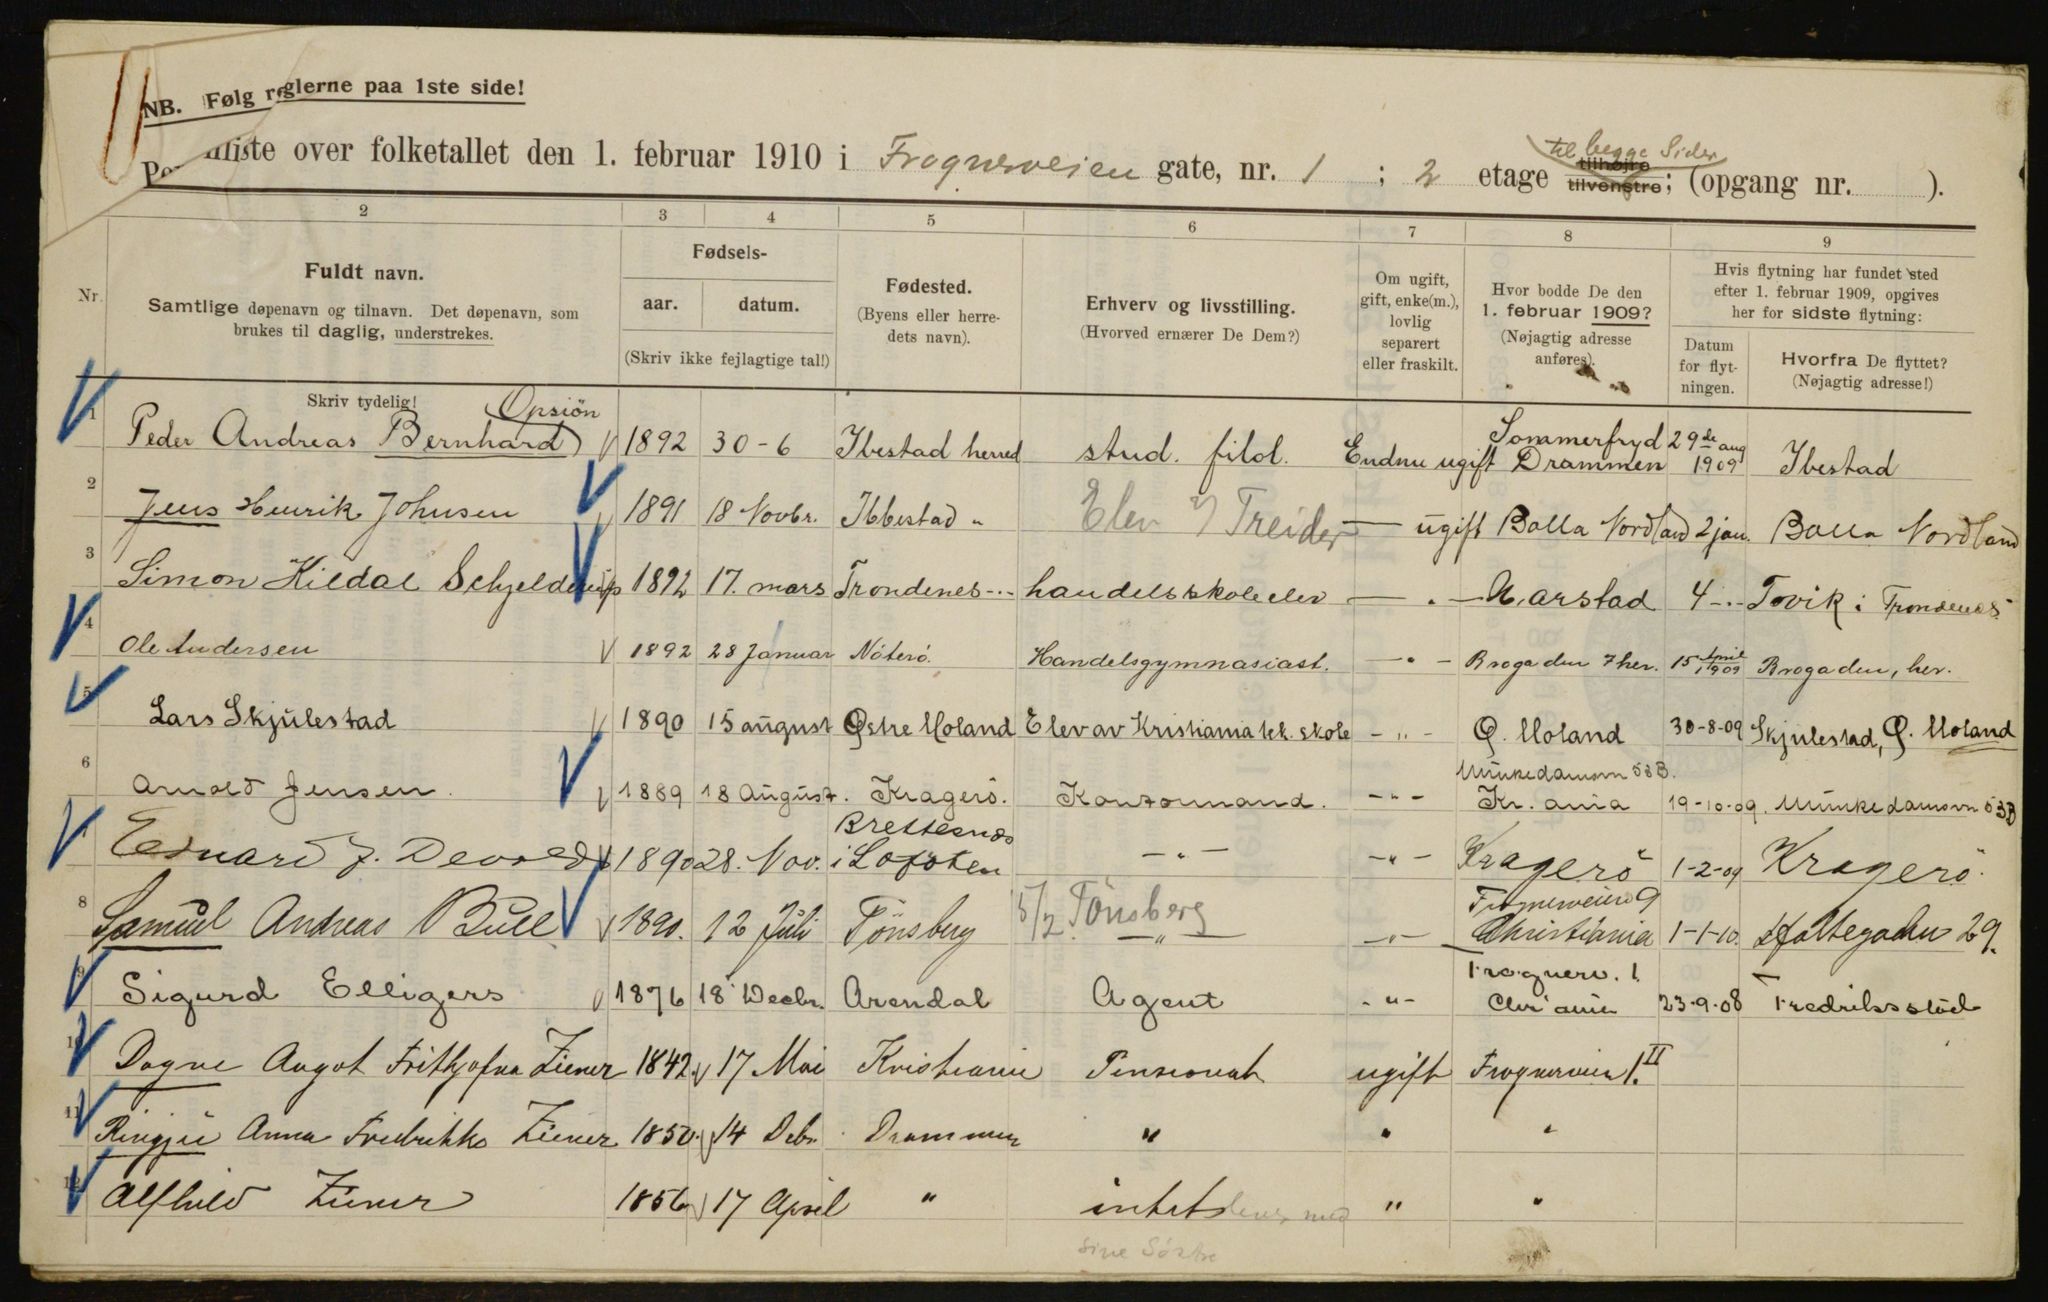 NB. Følg reglerne paa 1ste side!
liste over folketallet den 1. februar 1910 i Frognerveien gate, nr. 1 ; 2 etage til begge Sider tilhøjre tilvenstre; (opgang nr. ).
2 3 4 5 6 7 8 9
Nr.
Fuldt navn.
Samtlige døpenavn og tilnavn. Det døpenavn, som
brukes til daglig, understrekes.
Skriv tydelig!
Fødsels-
aar. datum.
(Skriv ikke fejlagtige tal!)
Fødested.
(Byens eller herre-
dets navn).
Erhverv og livsstilling.
(Hvorved ernærer De Dem?)
Om ugift,
gift, enke(m.),
lovlig
separert
eller fraskilt.
Hvor bodde De den
1. februar 1909?
(Nøjagtig adresse
anføres).
Hvis flytning har fundet sted
efter 1. februar 1909, opgives
her for sidste flytning:
Datum
for flyt-
ningen.
Hvorfra De flyttet?
(Nøjagtig adresse!)
Opsiön
1 Peder Andreas Bernhard 1892 30-6 Ibestad herred stud. filol. Endnu ugift Sommerfryd Drammen 29de aug 1909 Ibestad
2 Jens Henrik Johnsen 1891 18 Novbr. Ibbestad " Elev v/ Treider — ugift Balla Nordland 2 jan. Balla Nordland
3 Simon Kildal Schjelderup 1892 17. mars Trondenes -"- handelsskoleelev — " — Harstad 4 -"- Tovik i Trondenes
4 Ole Andersen 1892 28 Januar Nöterö. Handelsgymnasiast. — " — Brogaden 7 her. 15 April 1909 Brogaden, her.
5 Lars Skjulestad 1890 15 august Østre Moland Elev av Kristiania tek. skole - " - Ø. Moland 30-8-09 Skjulestad, Ø. Moland
6 Arnold Jensen. 1889 18 August. Kragerö. Kontormand. - " - Munkedamsvn 53B. Kr.ania 19-10-09. Munkedamsvn 53B
7 Edvard J. Devold 1890 28. Nov. Brettesnæs i Lofoten — " — - " - Kragerö 1-2-09 Kragerö.
8 Samuel Andreas Bull 1890. 12 Juli Tönsberg 5/2 Tönsberg — " — - " - Frognerveien 9 Christiania 1-1-10. Holtegaden 29.
9 Sigurd Elligers 1876 18 Decbr. Arendal Agent - " - Frognerv. 1. Chr.ania 23-9-08 Fredriksstad
10 Dagne Angot Frithjofna Ziener 1842. 17 Mai Kristiania Pensionat ugift Frognerveien 1. II
11 Ringju Anna Fredrikke Ziener 1850. 14 Debr. Drammen " " "
12 Alfhild Ziener 1856 17 April " intet lever med " "
sine Söstre